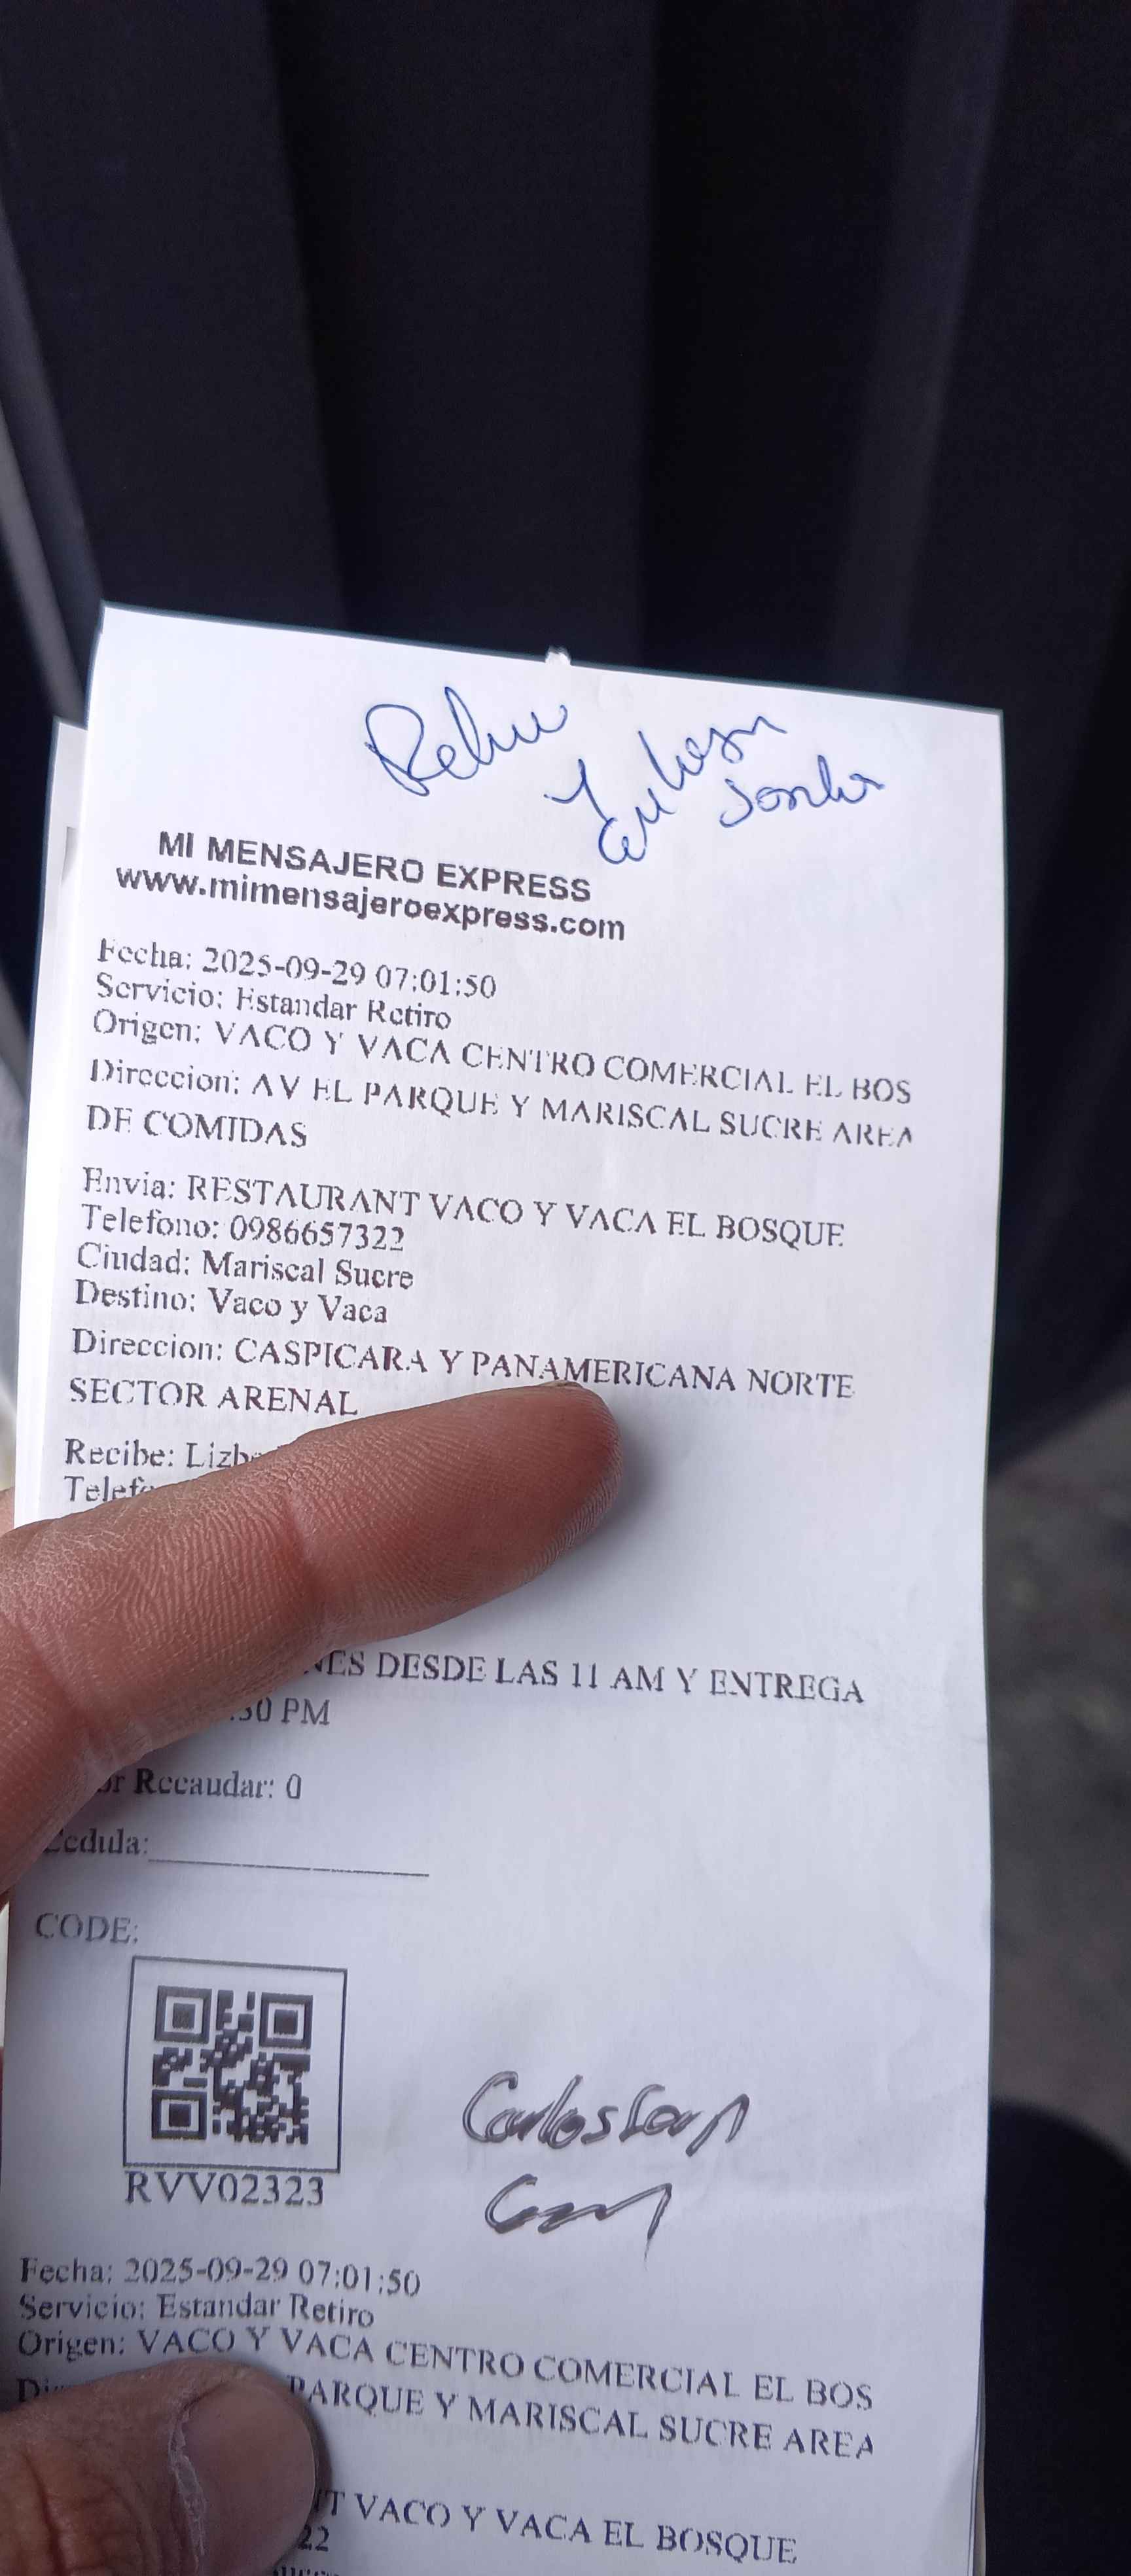 MI MENSAJERO EXPRESS
www.mimensajeroexpress.com
Fecha: 2025-09-29 07:01:50
Servicio: Estandar Retiro
Origen: VACO Y VACA CENTRO COMERCIAL EL BOS
Direccion: AV EL PARQUE Y MARISCAL SUCRE AREA
DE COMIDAS
Envia: RESTAURANT VACO Y VACA EL BOSQUE
Telefono: 0986657322
Ciudad: Mariscal Sucre
Destino: Vaco y Vaca
Direccion: CASPICARA Y PANAMERICANA NORTE
SECTOR ARENAL
Recibe:
DESDE LAS 11 AM Y ENTREGA
PM
Recaudar: 0
Cedula:
CODE:
RVV02323
Carlos
Fecha: 2025-09-29 07:01:50
Servicio: Estandar Retiro
Origen: VACO Y VACA CENTRO COMERCIAL EL BOS
PARQUE Y MARISCAL SUCRE AREA
VACO Y VACA EL BOSQUE
22